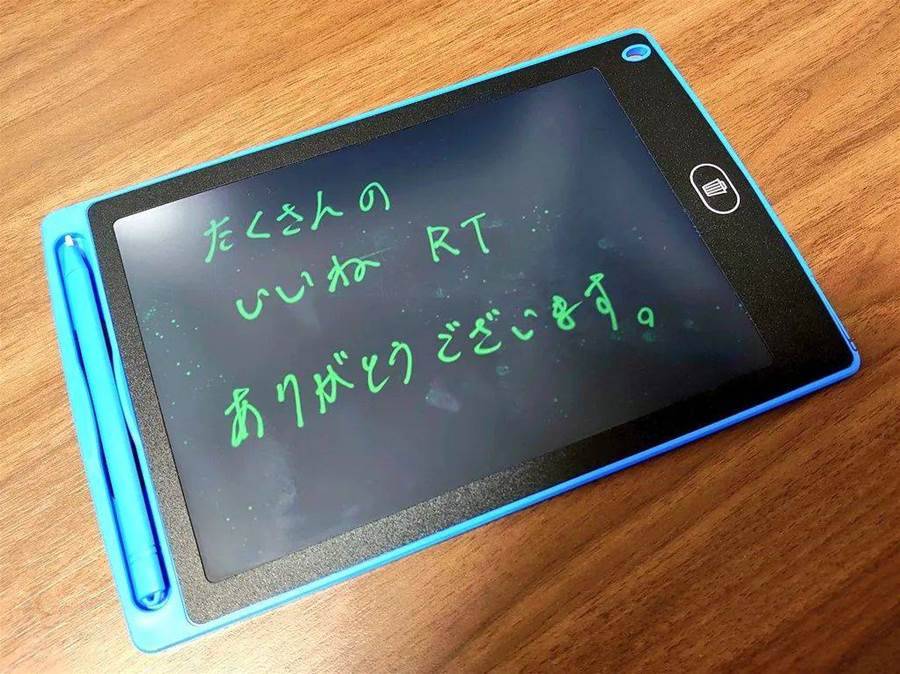 たくさんの
いいね RT
ありがとうございます。